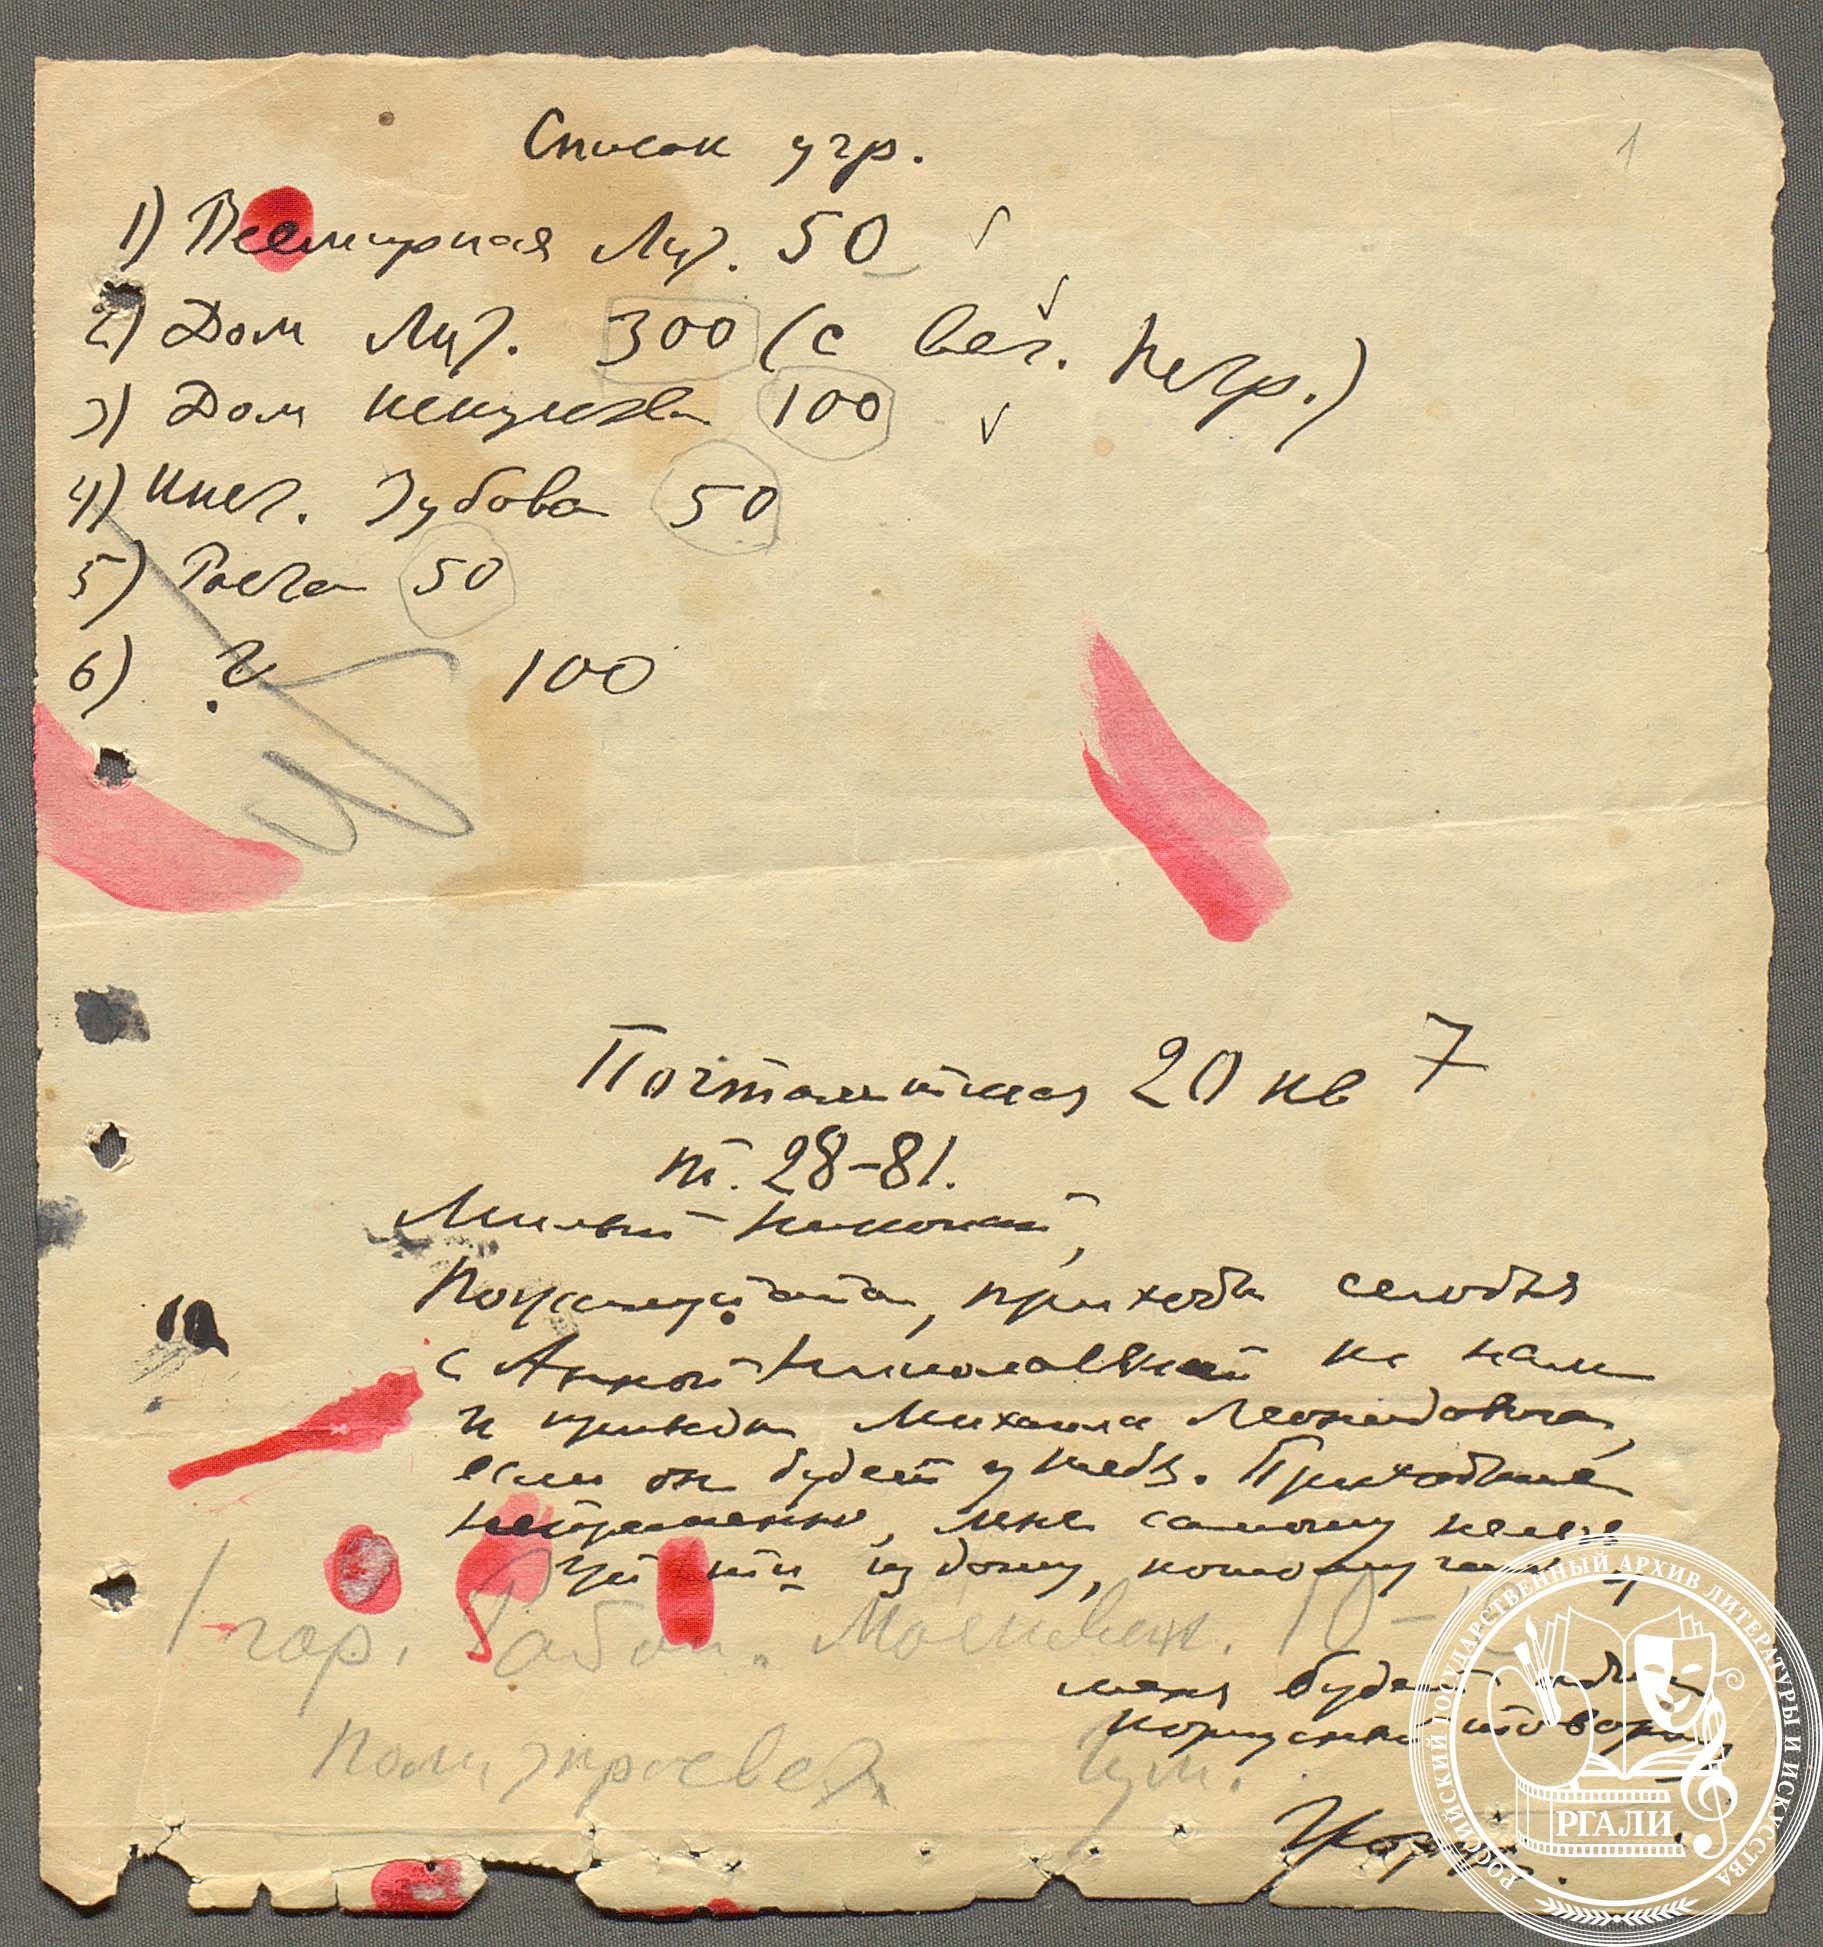 1
Список учр.
1) Всемирная Лит. 50
2) Дом Лит. 300 (с вест. Петр.)
3) Дом искусств 100
4) Инст. Зубова 50
5) Роста 50
6) ? 100
Почтамтская 20 кв 7
т. 28-81.
Милый Николай,
Пожалуйста, приходи сегодня
с Анной Николаевной к нам
и приведи Михаила Леонидовича,
если он будет у тебя. Приходите
непременно, мне самому нельзя
уйти из дому, потому что у
1 гор. Рабоч. 10-
меня будет
Политпросвет
Георгий.
РОССИЙСКИЙ ГОСУДАРСТВЕННЫЙ АРХИВ ЛИТЕРАТУРЫ И ИСКУССТВА
РГАЛИ